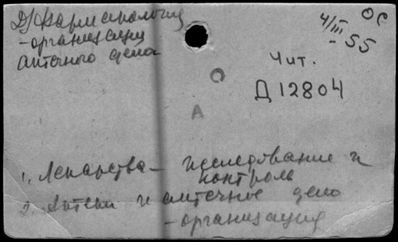 Фармакология
- организация
аптечного дела
ОС
4/III
- 55
Чит.
Д 12804
А
1. Лекарства - исследование и
контроль
2. Аптеки и аптечное дело
- организация